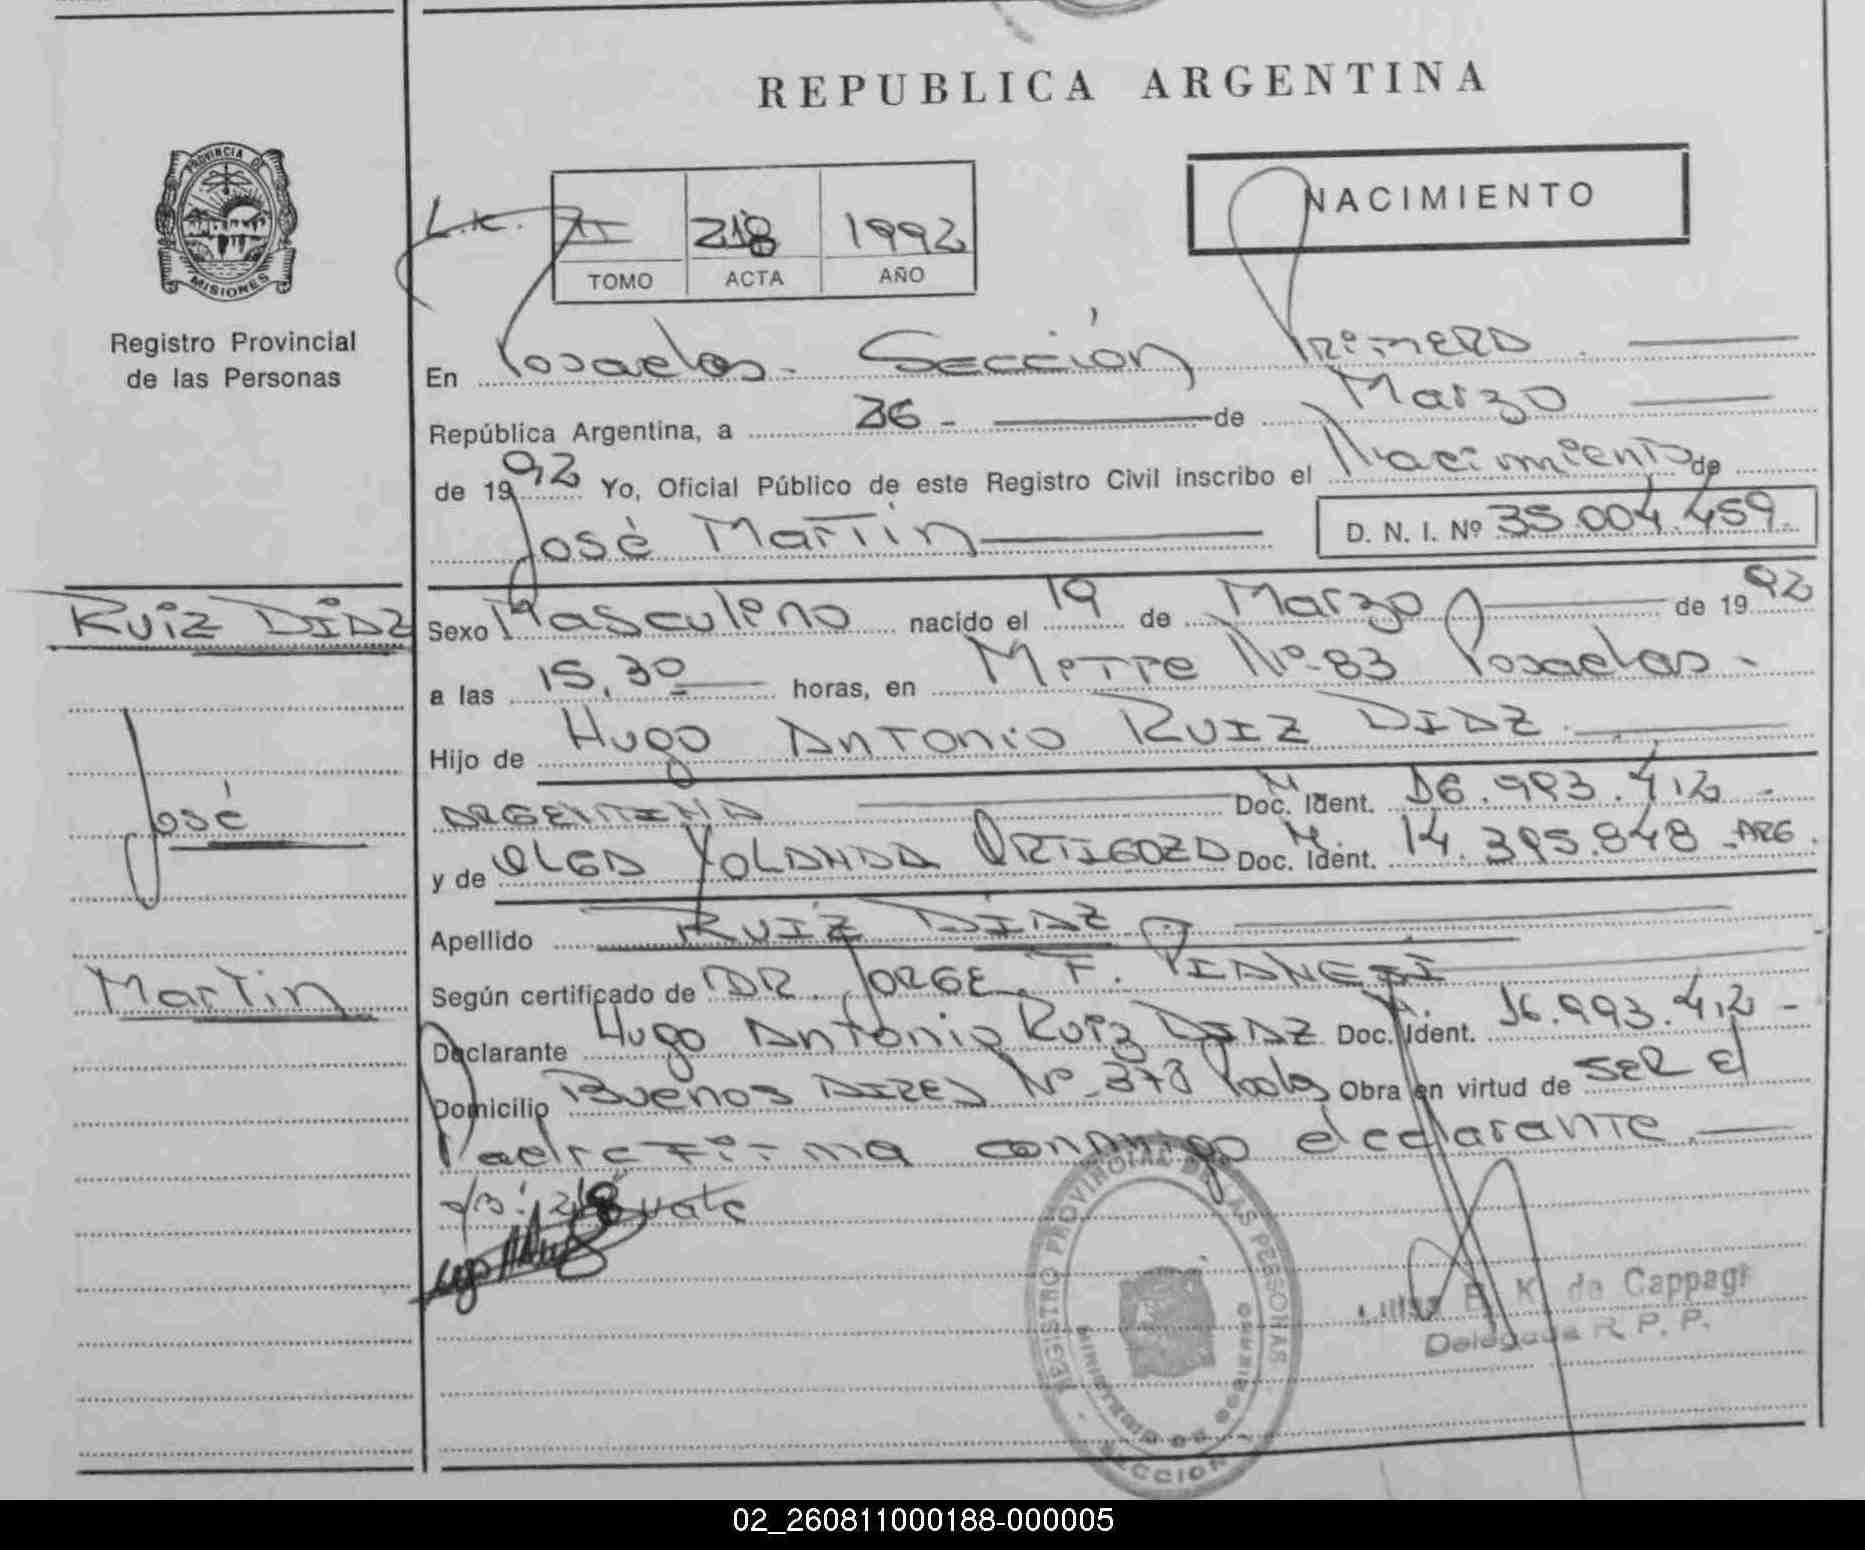 REPUBLICA ARGENTINA
PROVINCIA DE
MISIONES
Registro Provincial
de las Personas
NACIMIENTO
L.K. II 218 1992
TOMO ACTA AÑO
En Posadas - Sección Primera
República Argentina, a 26 - de Marzo
de 1992 Yo, Oficial Público de este Registro Civil inscribo el Nacimiento de
José Martin D. N. I. Nº 35.004.459.
Ruiz DIAZ
José
Martin
Sexo Masculino nacido el 19 de Marzo de 1992
a las 15,30 horas, en Mitre Nº 83 Posadas -
Hijo de Hugo Antonio Ruiz DIAZ
ARGENTINA Doc. Ident. 16.993.412 -
y de OLGA YOLANDA ORTIGOZA Doc. Ident. 14.395.848 - ARG.
Apellido RUIZ DIAZ
Según certificado de DR. JORGE F. PIANESI
Declarante Hugo Antonio Ruiz DIAZ Doc. Ident. 16.993.412 -
Domicilio Buenos AIRES Nº 378 Pdas Obra en virtud de SER El
Padre Firma conmigo el declarante
s/b: 218 vale
REGISTRO PROVINCIAL DE LAS PERSONAS
MINISTERIO DE GOBIERNO
SECCION
E. K. de Cappagli
Delegada R. P. P.
02_260811000188-000005